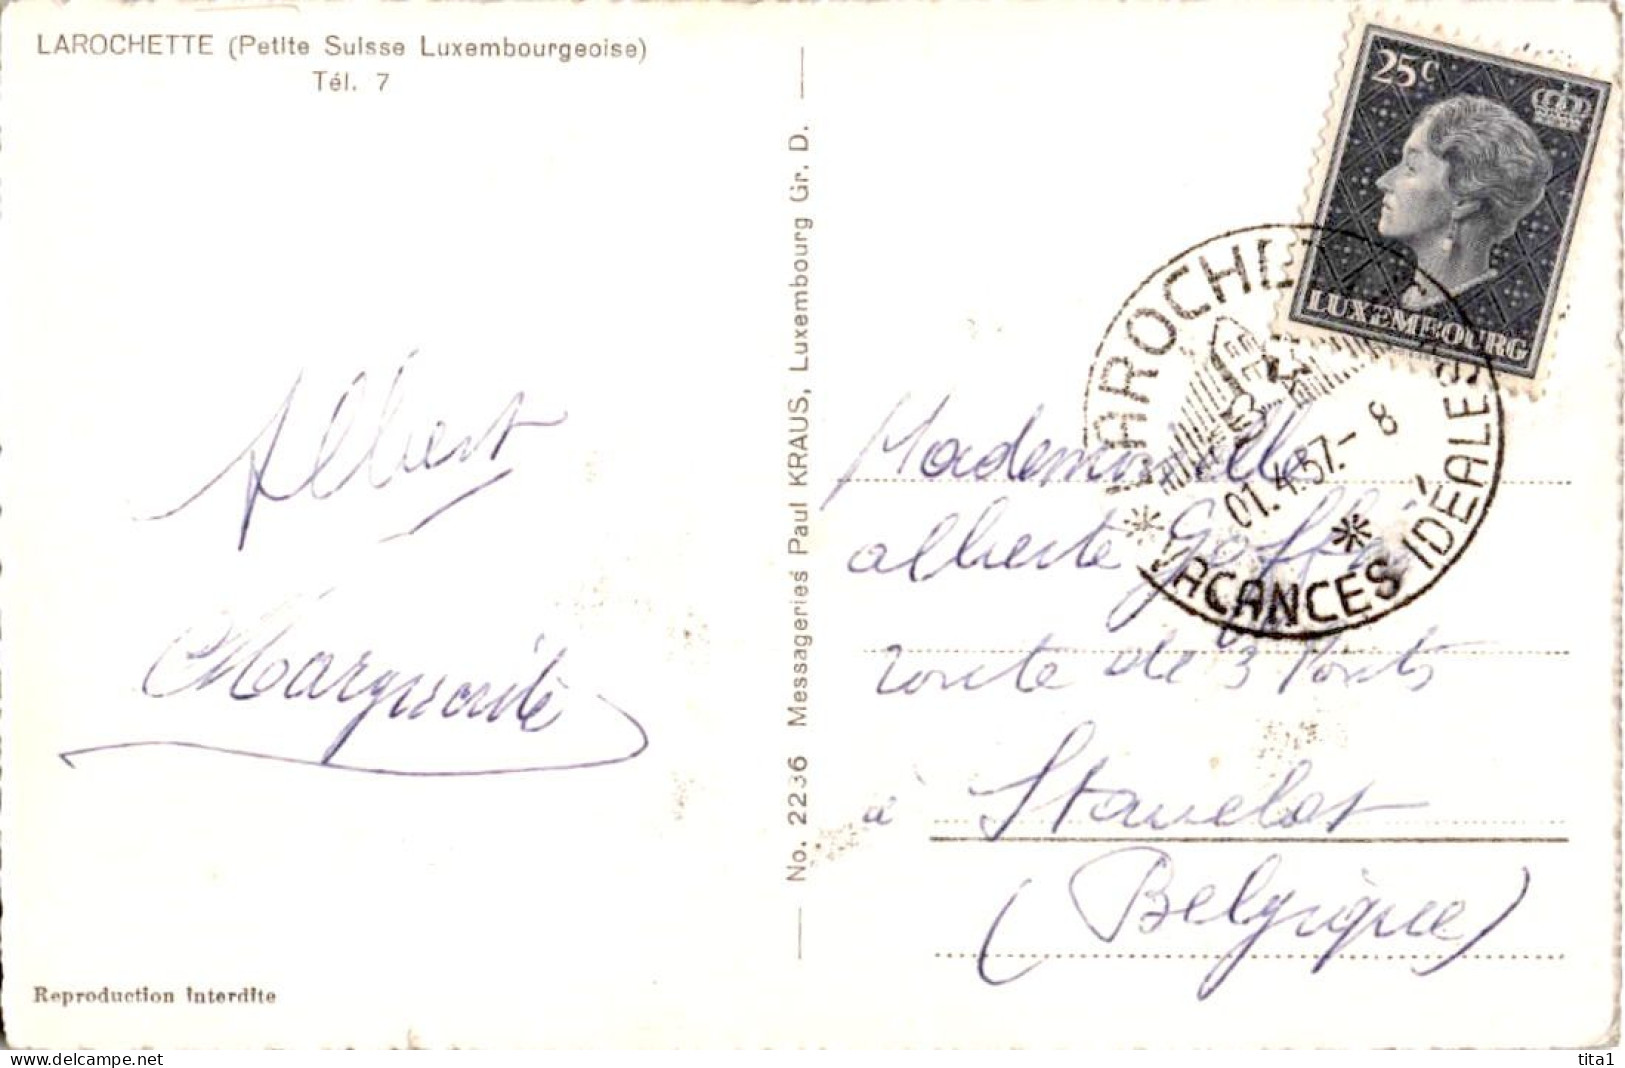 LAROCHETTE (Petite Suisse Luxembourgeoise)
Tél. 7
Albert
Marguerite
Reproduction Interdite
No. 2236 Messageries Paul KRAUS, Luxembourg Gr. D.
25c
LUXEMBOURG
LAROCHETTE
01.4.57.- 8
* VACANCES IDÉALES *
Mademoiselle
Alberte Goffin
route de 3 Ponts
à Stavelot
(Belgique)
www.delcampe.net
tita1